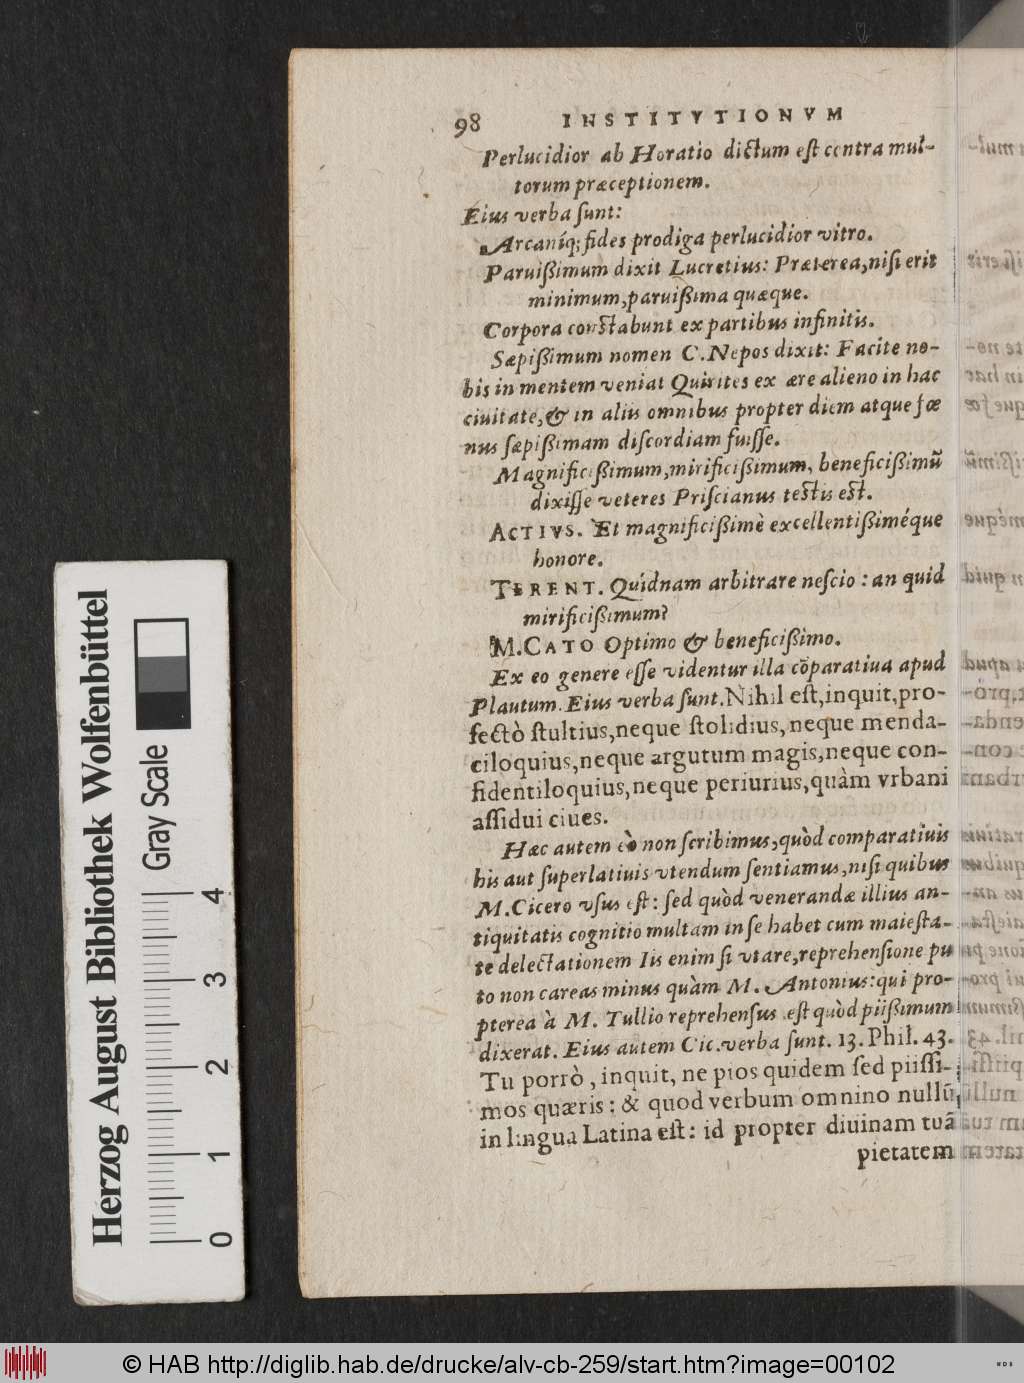 98 INSTITVTIONVM
Perlucidior ab Horatio dictum eſt contra mul-
torum præceptionem.
Eius verba ſunt:
Arcaníq; fides prodiga perlucidior vitro.
Paruißimum dixit Lucretius: Præterea, niſi erit
minimum, paruißima quæque.
Corpora conſtabunt ex partibus infinitis.
Sæpißimum nomen C. Nepos dixit: Facite no-
bis in mentem veniat Quirites ex ære alieno in hac
ciuitate, & in aliis omnibus propter diem atque fœ
nus ſæpißimam diſcordiam fuiſſe.
Magnificißimum, mirificißimum, beneficißimũ
dixiſſe veteres Priſcianus teſtis eſt.
ACTIVS. Et magnificißimè excellentißiméque
honore.
TERENT. Quidnam arbitrare neſcio: an quid
mirificißimum?
M. CATO Optimo & beneficißimo.
Ex eo genere eſſe videntur illa cõparatiua apud
Plautum. Eius verba ſunt. Nihil eſt, inquit, pro-
fectò ſtultius, neque ſtolidius, neque menda-
ciloquius, neque argutum magis, neque con-
fidentiloquius, neque periurius, quàm vrbani
aſſidui ciues.
Hæc autem eò non ſcribimus, quòd comparatiuis
his aut ſuperlatiuis vtendum ſentiamus, niſi quibus
M. Cicero vſus eſt: ſed quòd venerandæ illius an-
tiquitatis cognitio multam in ſe habet cum maieſta-
te delectationem Iis enim ſi vtare, reprehenſione pu
to non careas minus quàm M. Antonius: qui pro-
pterea à M. Tullio reprehenſus eſt quòd piißimum
dixerat. Eius autem Cic. verba ſunt. 13. Phil. 43.
Tu porrò, inquit, ne pios quidem ſed piiſſi-
mos quæris: & quod verbum omnino nullũ
in lingua Latina eſt: id propter diuinam tuã
pietatem
Herzog August Bibliothek Wolfenbüttel
Gray Scale
0 1 2 3 4
© HAB http://diglib.hab.de/drucke/alv-cb-259/start.htm?image=00102